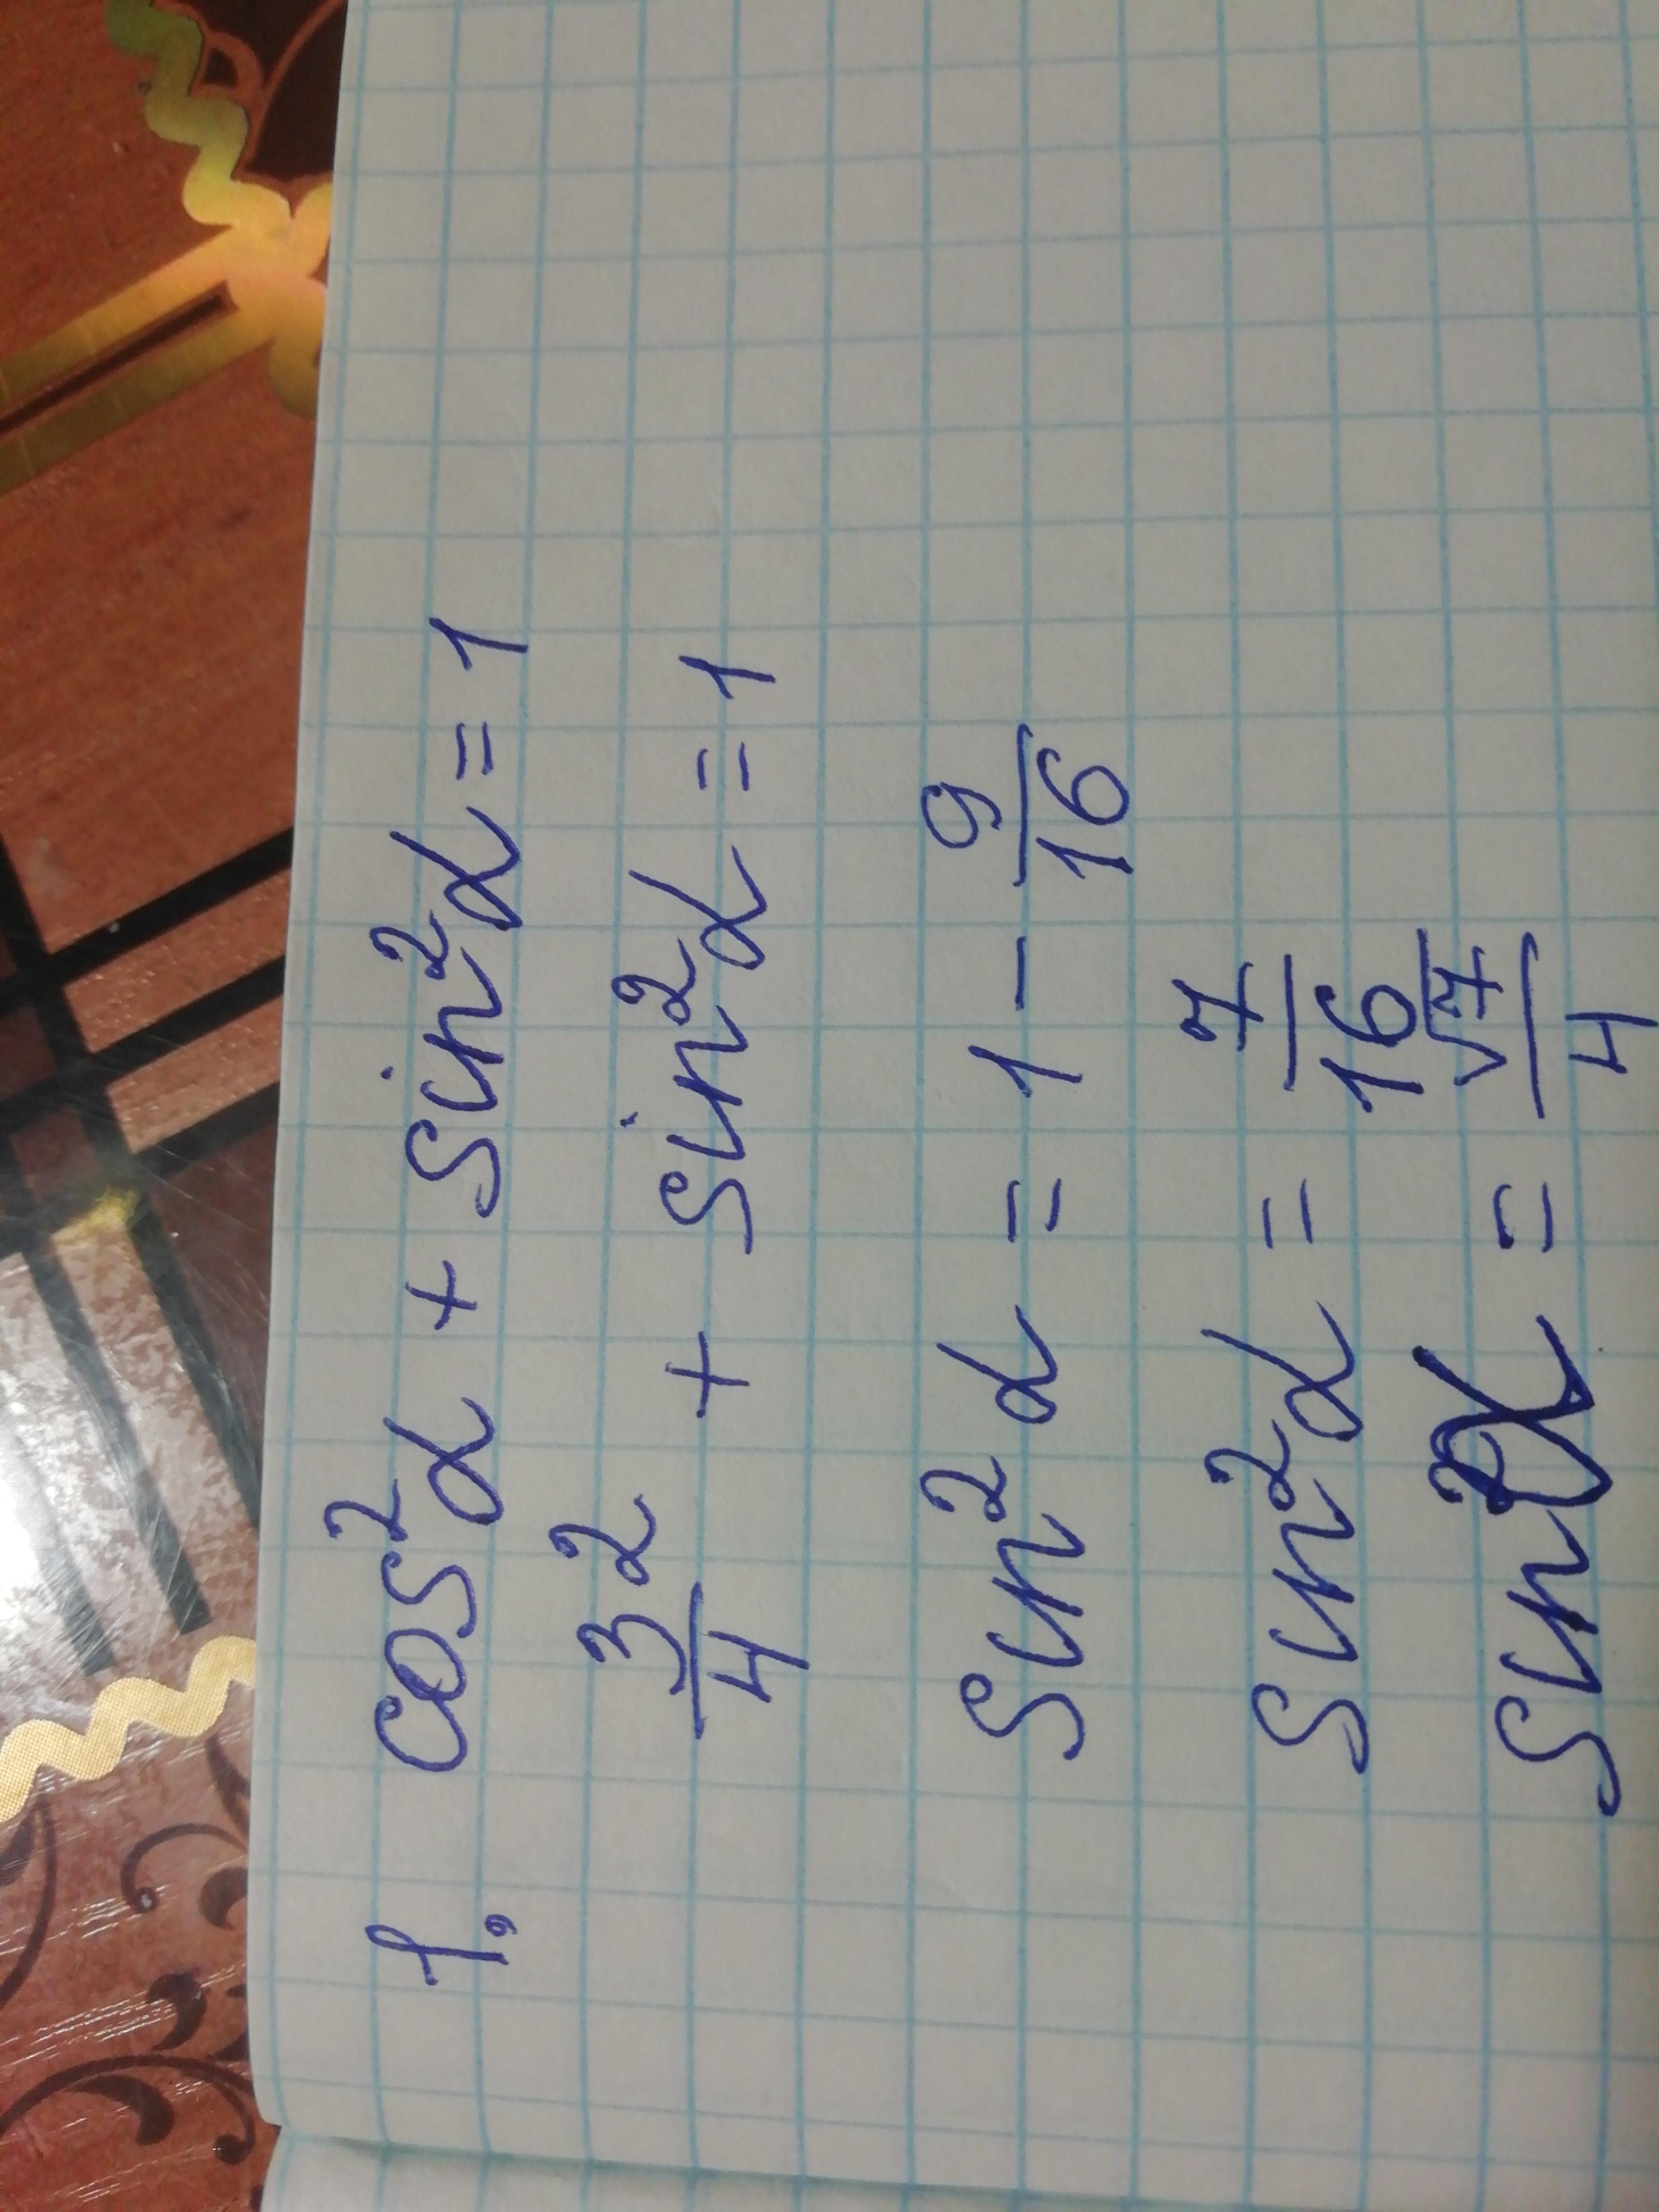 1. cos²α + sin²α = 1
3²/4 + sin²α = 1
sin²α = 1 - 9/16
sin²α = 7/16
sin α = √7/4